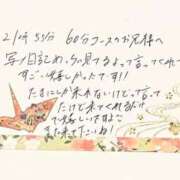 21時55分 60分コースのお兄様へ
写メ日記めっちゃ見てるよって言ってくれて
すごい嬉しかったです!!
たまにしか来れないけどって言って
たけど来てくれるだけ
で嬉しいですまた
また来て下さいね!